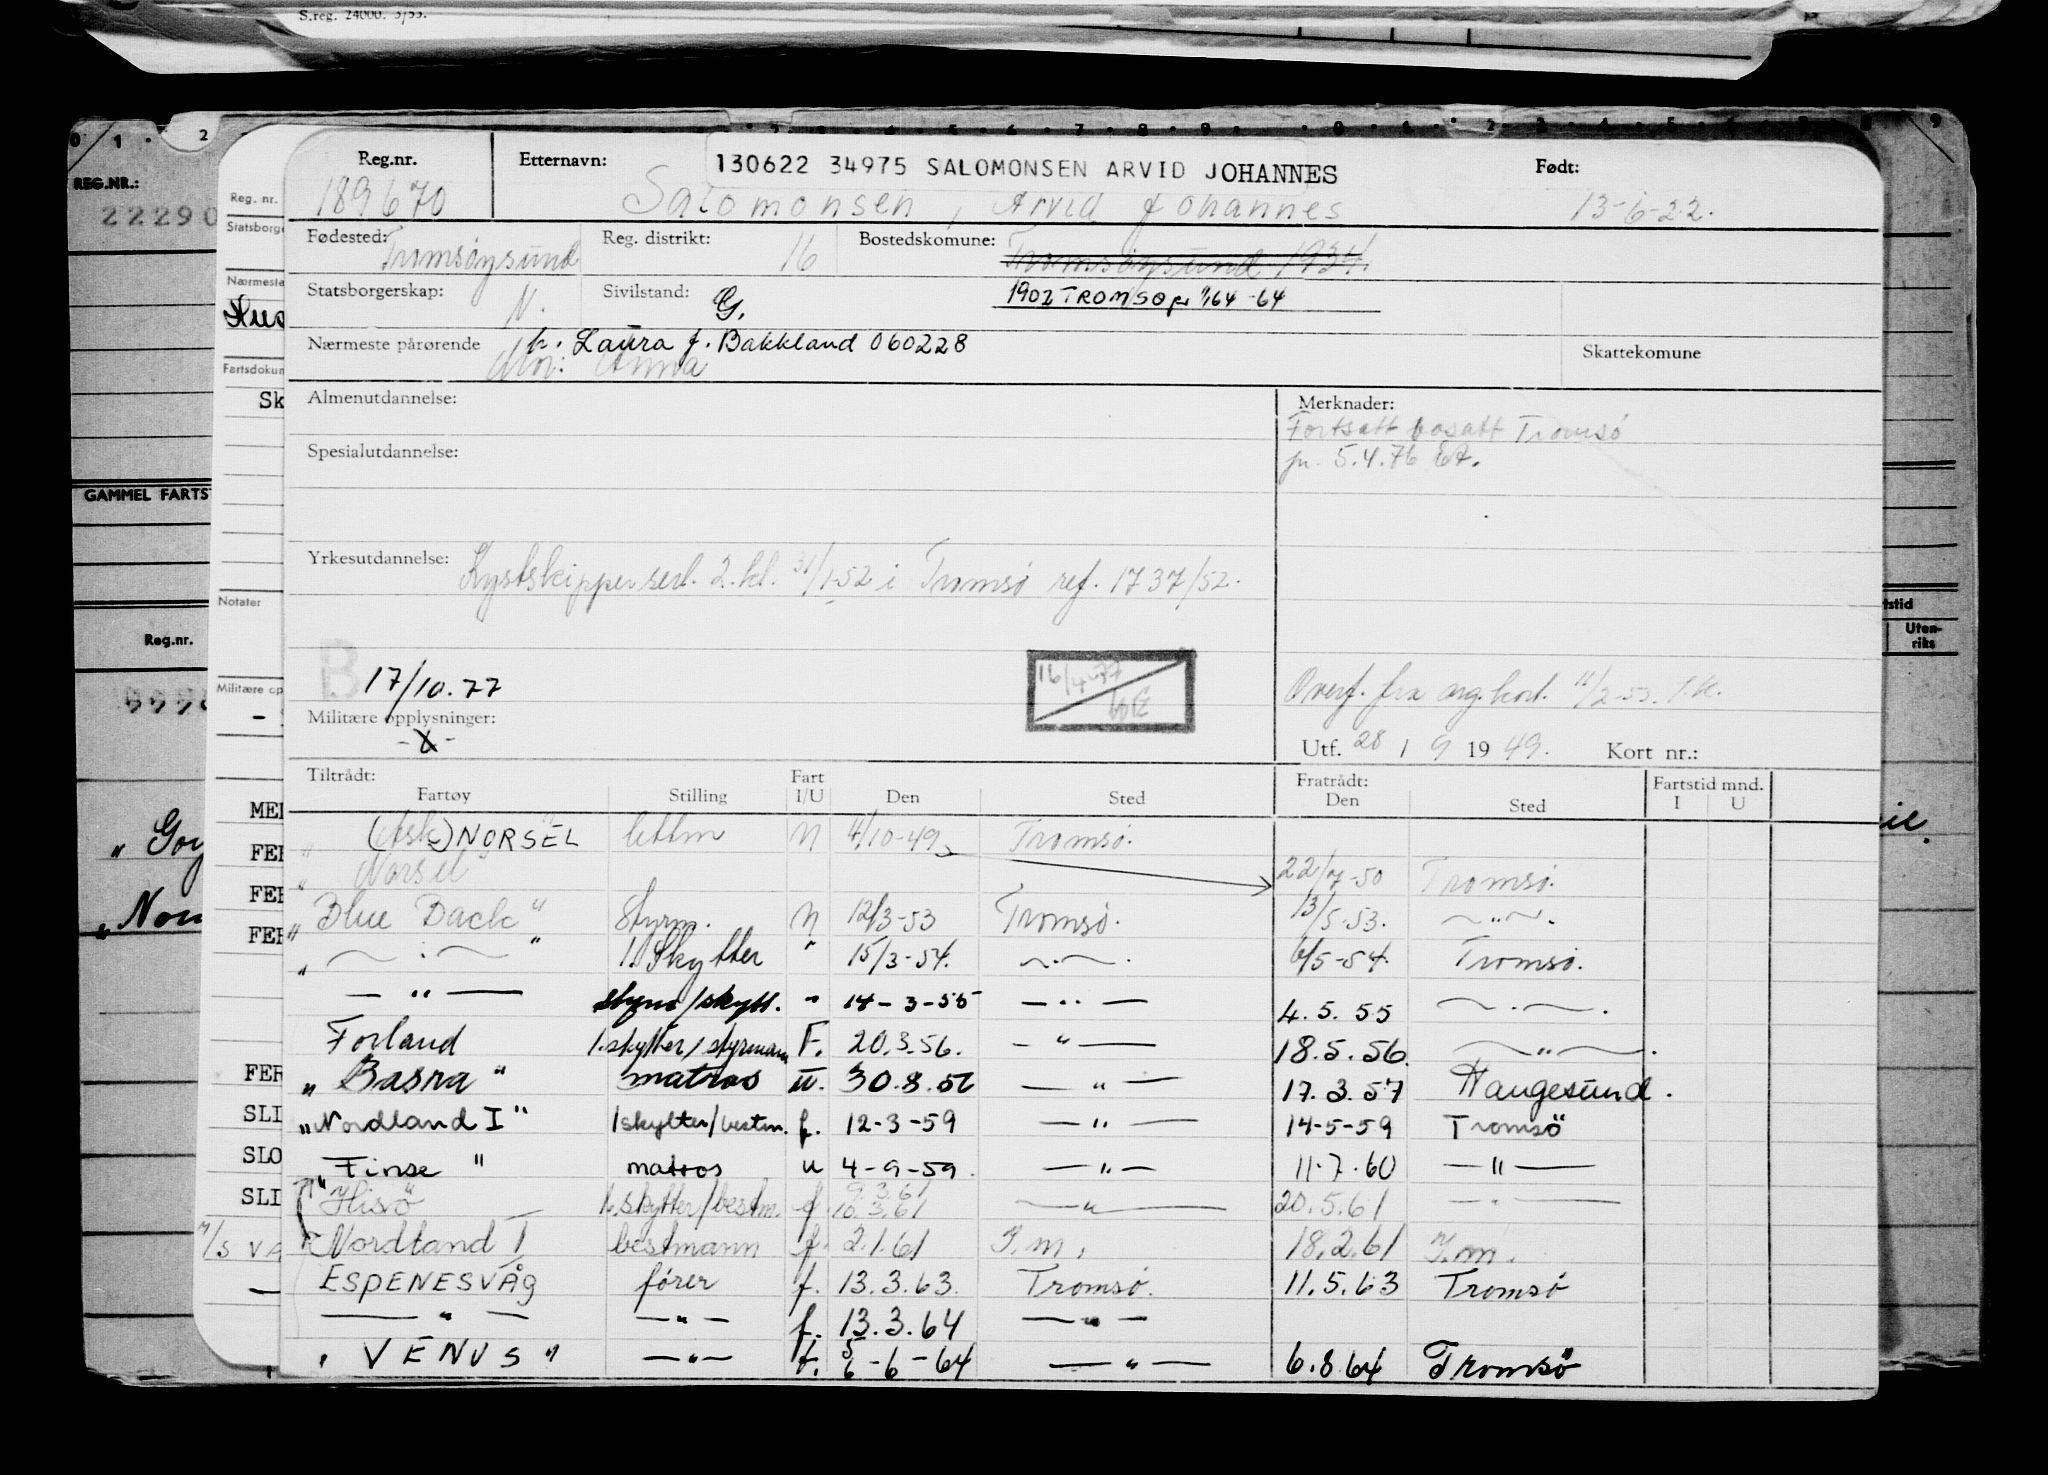 S.reg. 24000. 3/53.
0 1 2
REG.NR.:
22290
GAMMEL FARTS
Reg.nr.
Reg. nr.
Statsborge
Nærmeste
Hus
Fartsdokum
Sk
Notater
Militære op
MEI
FER
FER
FER
FER
SLI
SLO
SLI
M/S VA
" Gor
" Nor
Reg.nr. Etternavn: 130622 34975 SALOMONSEN ARVID JOHANNES Født:
189670 Salomonsen, Arvid Johannes 13-6-22.
Fødested: Tromsøysund Reg. distrikt: 16 Bostedskomune: Tromsøysund 1934.
Statsborgerskap: N. Sivilstand: G. 1902 TROMSØ pr 1/64-64
Nærmeste pårørende h. Laura J. Bakkland 060228 Skattekomune
Mor: Anna
Almenutdannelse: Merknader:
Fortsatt bosatt Tromsø
pr. 5.4.76
Spesialutdannelse:
Yrkesutdannelse: Kystskippersert. 2.kl. 31/1-52 i Tromsø ref. 1737/52.
B 17/10.77 16/4-77
Overf. fra org.kort. 11/2-53.
Militære opplysninger: Utf. 28 / 9 1949. Kort nr.:
-X-
Tiltrådt: Fart Fratrådt: Fartstid mnd.
Fartøy Stilling I/U Den Sted Den Sted I U
" (Ask) NORSEL" lettm N 4/10-49 Tromsø.
" Norsel" 22/7-50 Tromsø.
" Blue Back" Styrm. N 12/3-53 Tromsø. 13/5-53. — " —.
" — . — " 1. Skytter " 15/3-54. — . —. 6/5-54. Tromsø.
— " — styrm/skytt. " 14-3-55 — " — 4.5.55 — . —.
Forland 1.skytter/styrmann F. 20.3.56. — " — 18.5.56. — " —.
" Basra " matros u. 30.8.56 — " — 17.3.57 Haugesund.
" Nordland I " 1skytter/bestm. f. 12-3-59 — " — 14-5-59 Tromsö
" Finse " matros u 4-9-59. — " — 11.7.60 — " —
" Hisø " 1.skytter/bestm. f 9.3.61 10.3.61 — " — 20.5.61 — " —
Nordland I bestmann f. 2.1.61 I.m. 18.2.61 I.m.
ESPENESVÅG fører f. 13.3.63. Tromsø. 11.5.63 Tromsø
— " — — " — f. 13.3.64 — " —
" VENUS " — " — f. 5-6-64 — " — 6.8.64 Tromsö
tstid
Uten-
riks